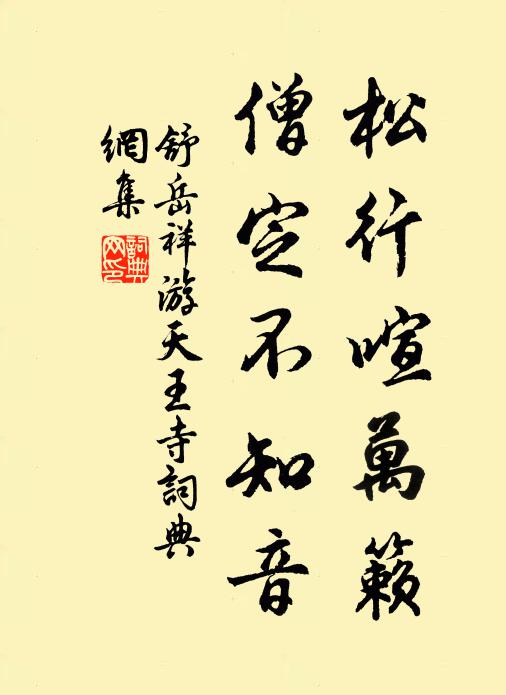 松行喧萬籟
僧定不知音
舒岳祥游天王寺詞典
網集
詞典
网印